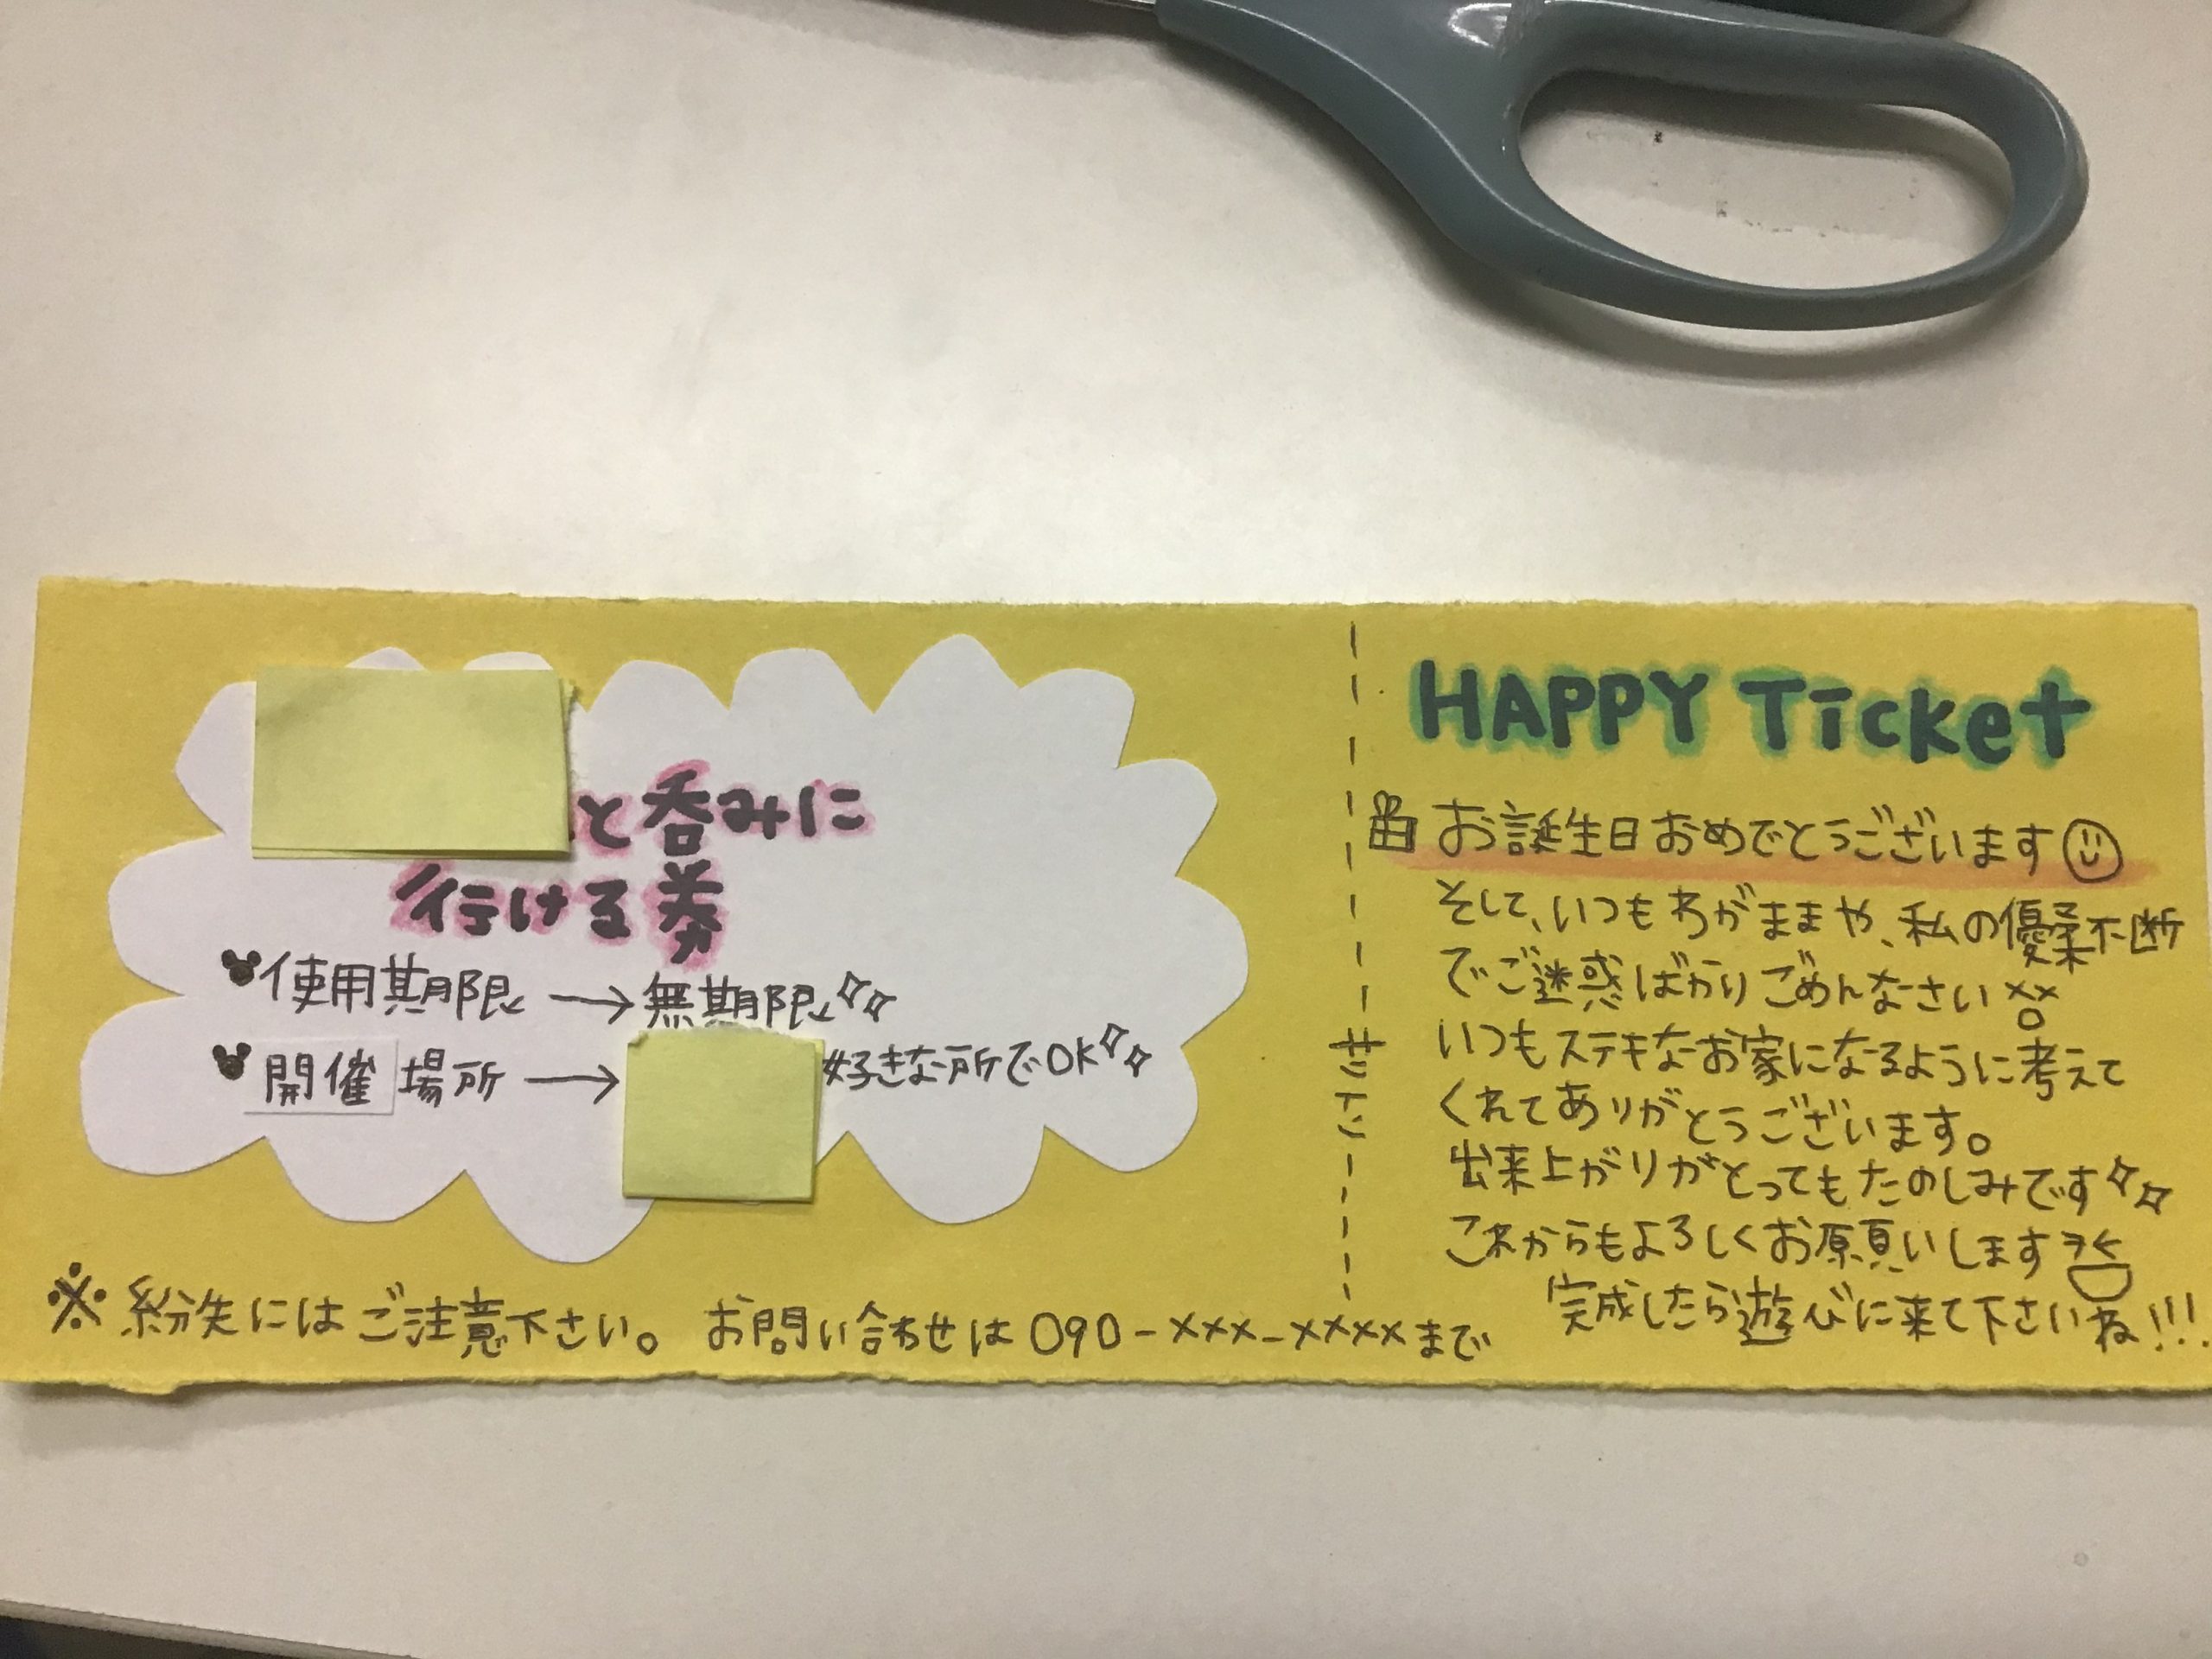 と呑みに
行ける券
使用期限→無期限
開催場所→
好きな所でOK
※紛失にはご注意下さい。 お問い合わせは090-×××-××××まで
キ
リ
ト
リ
HAPPY Ticket
お誕生日おめでとうございます
そして、いつもわがままや、私の優柔不断
でご迷惑ばかりごめんなさい
いつもステキなお家になるように考えて
くれてありがとうございます。
出来上がりがとってもたのしみです
これからもよろしくお願いします
完成したら遊びに来て下さいね!!!